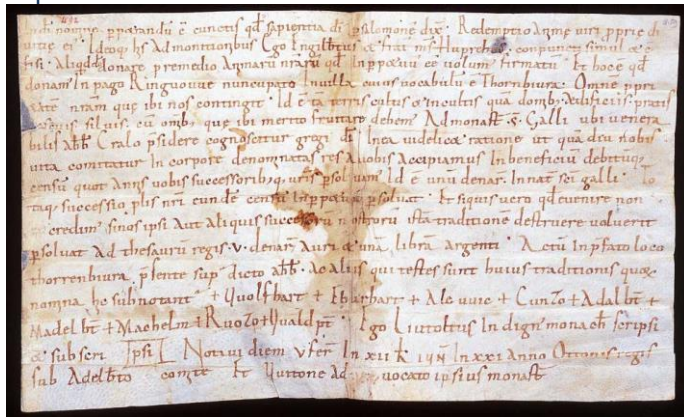 nomine pperandu e cunctis qd sapientia di psalomone dix. Redemptio Anme viri pprie di
uitie ei. Ideoq his Admonitionibus Ego Ingilbtus & frat ms Huprehc conpuncti simul &
fisi. Aliqd donare premedio Anmaru nraru qd Inppetuu ee volum firmatu. Et hoc e qd
donam In pago Ringouue nuncupato In uilla cuius uocabulu e Thornbiura. Omne ppri
&ate nram que ibi nos contingit. Id e ta terris cultis & incultis qua domb; ædificiis. pratis
siluis. cu omb; que ibi merito fruitare debem. Ad monast. s. Galli ubi uenera
bilis abb Cralo psidere cognoscitur gregi di. In ea uidelic& ratione ut qua diu nobis
uita comitatur In corpore denominatas res Auobis Accipiamus In beneficiu debituq;
censu quot Annis uobis successorib; q; uris psoluam Id e unu denar. In nat sci galli. To
taq; successio plis nri eunde censu Inppetuu psoluat. Et siquis uero qd euenire non
credim sinos ipsi Aut Aliquis successoru nostroru ista traditione destruere uoluerit
psoluat Ad thesauru regis .v. denar Auri & una libra argenti. Actu In pfato loco
thorrenbiura plente sup dicto abb. Ac aliis qui testes sunt huius traditionis quor
nomina hc subnotant + Uuolfhart + Eburhart + Aleuuic + Cunzo + Adalbt +
Madelbt + Machelm + Ruozo + Uualdpt. Ego Liutoltus In dign monach scripsi
& subscri Ipsi Notaui diem vfer In xii k iun In xxi Anno Ottonis regis
sub Adelbto comite Et Uuitone Aduocato ipsius monast